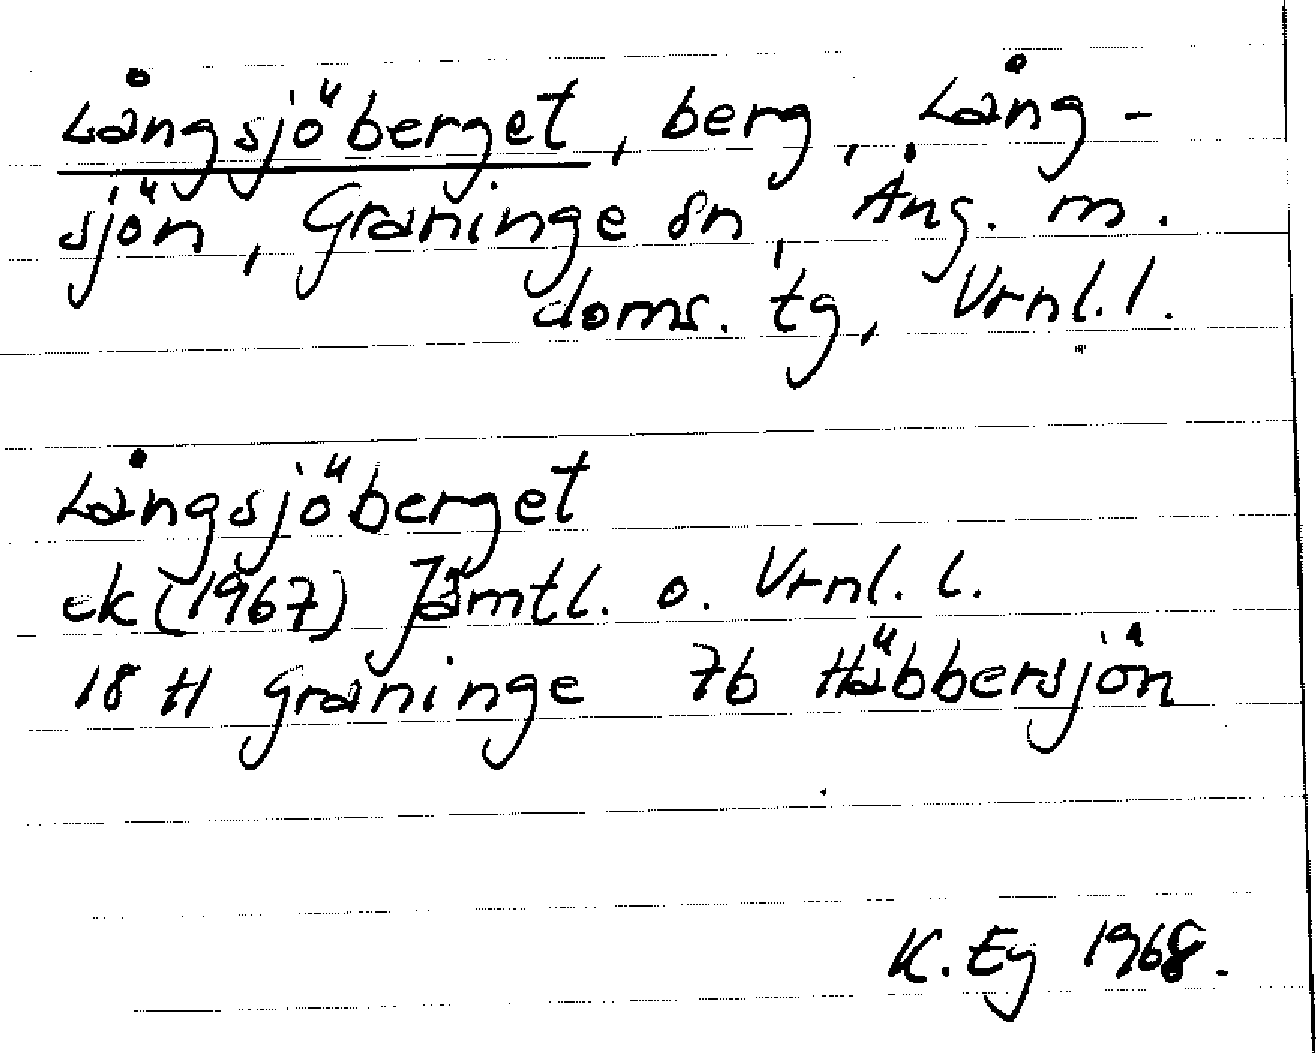 Långsjöberget, berg, Lång-
sjön, Graninge sn, Ång. m.
doms. tg, Vrnl. l.
Långsjöberget
ek (1967) Jämtl. o. Vrnl. l.
18 H Graninge 7b Häbbersjön
K. Ey 1968.